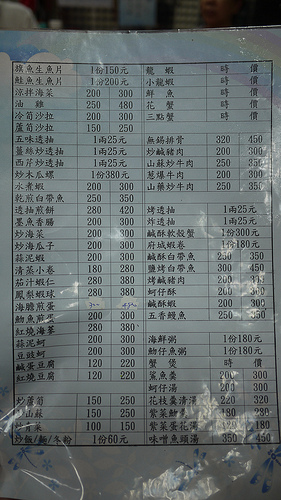 旗魚生魚片 1份150元 龍蝦 時價
鮭魚生魚片 1份200元 小龍蝦 時價
涼拌海菜 200 300 鮮魚 時價
油雞 250 480 花蟹 時價
冷筍沙拉 200 300 三點蟹 時價
蘆筍沙拉 150 250
五味透抽 1兩25元 無錫排骨 320 450
薑絲透抽 1兩25元 炒鹹豬肉 200 300
西芹炒透抽 1兩25元 山蘇炒牛肉 250 350
炒水瓜螺 1份380元 蔥爆牛肉 200 300
水煮蝦 200 300 山藥炒牛肉 250 350
乾煎白帶魚 250 350
透抽煎餅 280 420 烤透抽 1兩25元
墨魚香腸 200 300 炸透抽 1兩25元
炒海菜 200 300 鹹酥軟殼蟹 1份300元
炒海瓜子 200 300 府城蝦卷 1份180元
蒜泥蝦 200 300 鹹酥白帶魚 250 350
清蒸小卷 180 280 鹽烤白帶魚 300 450
茄汁蝦仁 280 380 烤鹹豬肉 200
鳳梨蝦球 280 380 蚵仔酥 200 300
海膽煎蛋 鹹酥蝦 200 300
魩魚煎蛋 200 300 五香鰻魚 250 350
紅燒海蔘 280 380
蒜泥蚵 200 300 海鮮粥 1份180元
豆豉蚵 200 300 魩仔魚粥 1份180元
鹹蛋豆腐 120 220 蟹煲 時價
紅燒豆腐 120 220 鯊魚羹 200 300
蚵仔湯 200 300
炒蘆筍 150 250 花枝羹清湯 220 320
炒山蘇 150 250 紫菜魩 180 280
炒青菜 100 150 紫菜蛋花湯 100
炒飯/麵/冬粉 1份60元 味噌魚頭湯 350 450